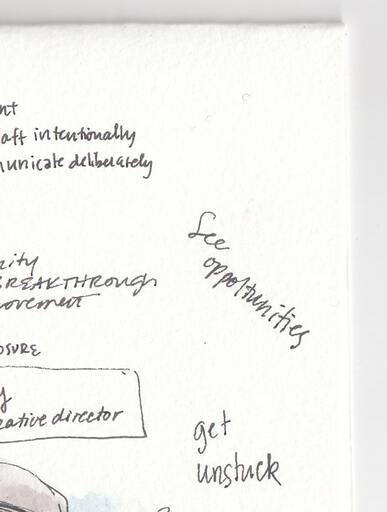 nt
aft intentionally
municate deliberately
See
opportunities
city
BREAKTHROUGH
ovement
OSURE
y
eative director
get
unstuck